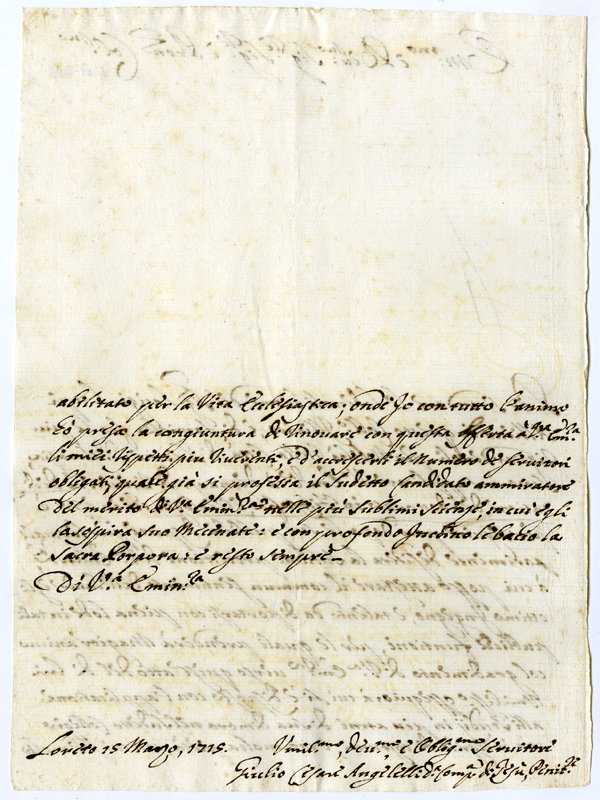 abilitato per la Vita Ecclesiastica; onde Io con tutto l'animo
hò preso la congiuntura di rinovare con questa offerta à V.ra Em.za
li miei rispetti più riverenti, e d'accrescerli il numero de servitori
obligati, quale già si professa il sudetto Candidato ammiratore
del merito di V.a Emin.za nelle più sublimi scienze, in cui egli
la sospira suo Mecenate: e con profondo Inchino le bacio la
Sacra Porpora: e resto sempre
Di V.a Emin.za
Loreto 15 Marzo, 1715. Umil.mo, dev.mo e Oblig.mo Servitore
Giulio Cesare Angelelli d.a Comp.a di Jesù, Penit.re